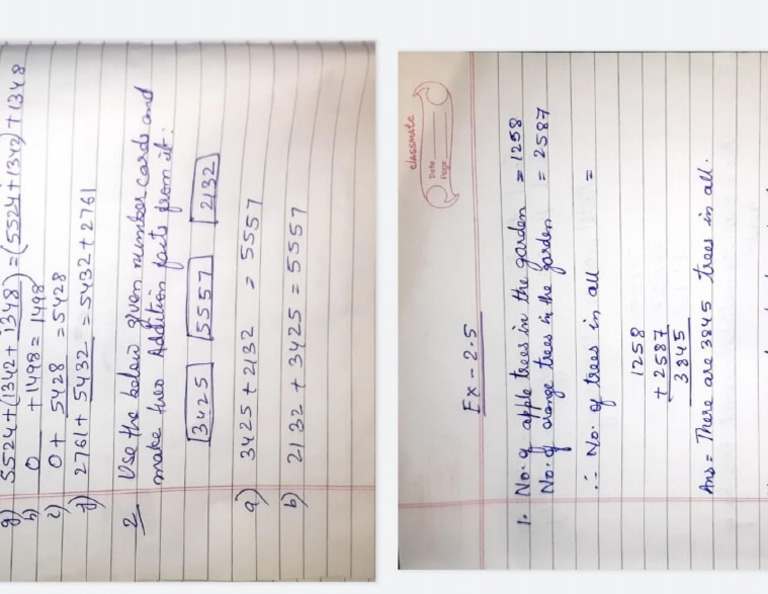 g) 5524+(1342+1348)=(5524+1342)+1348
h) 0 +1498=1498
i) 0+ 5428 =5428
j) 2761+ 5432 =5432+2761
2 Use the below given number cards and
make two Addition facts from it.
3425 5557 2132
a) 3425+2132 = 5557
b) 2132 + 3425=5557
classmate
Date
Page
Ex-2.5
1. No. of apple trees in the garden = 1258
No. of orange trees in the garden = 2587
∴ No. of trees in all =
1258
+2587
3845
Ans= There are 3845 trees in all.